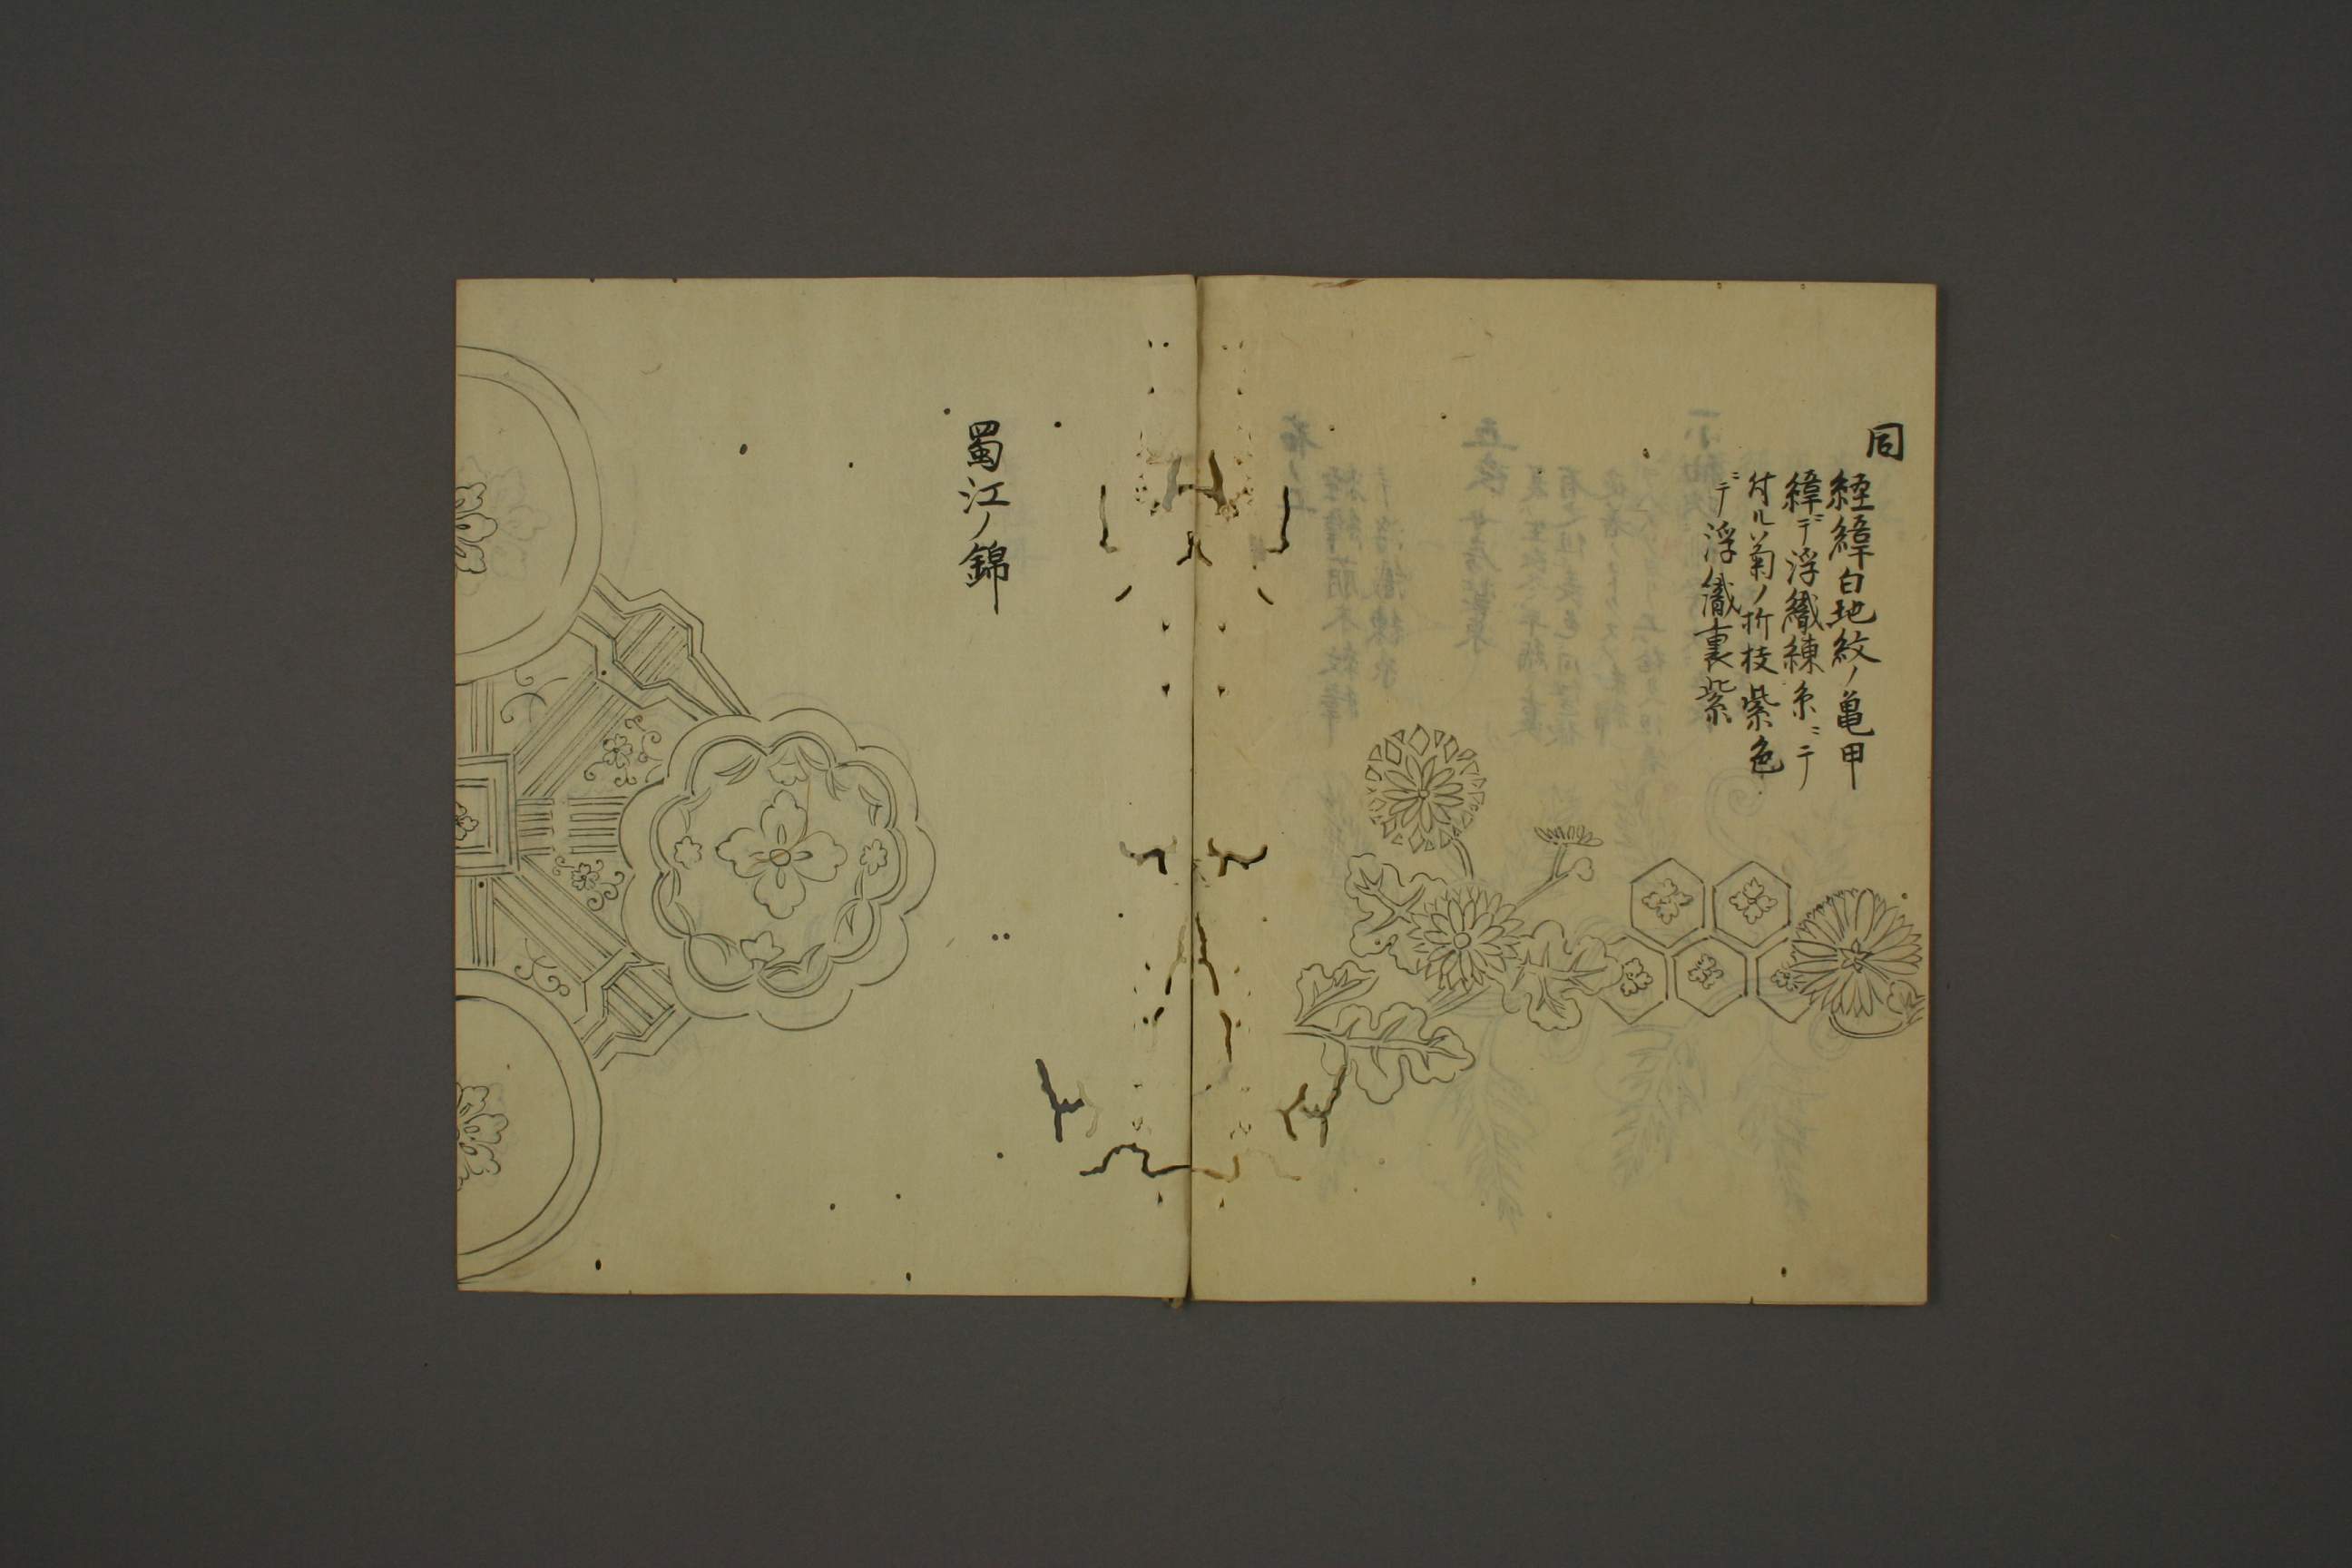 同
経緯白地紋ノ亀甲
緯ニテ浮織練糸ニテ
付ル菊ノ折枝紫色
ニテ浮織裏紫
蜀江ノ錦